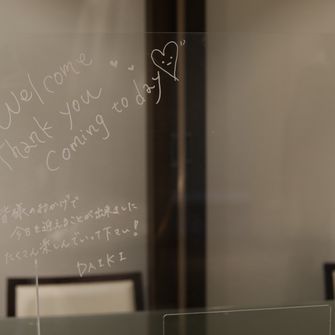 Welcome
Thank you
Coming today
皆様のおかげで
今日を迎えることが出来ました
たくさん楽しんでいって下さい!
DAIKI